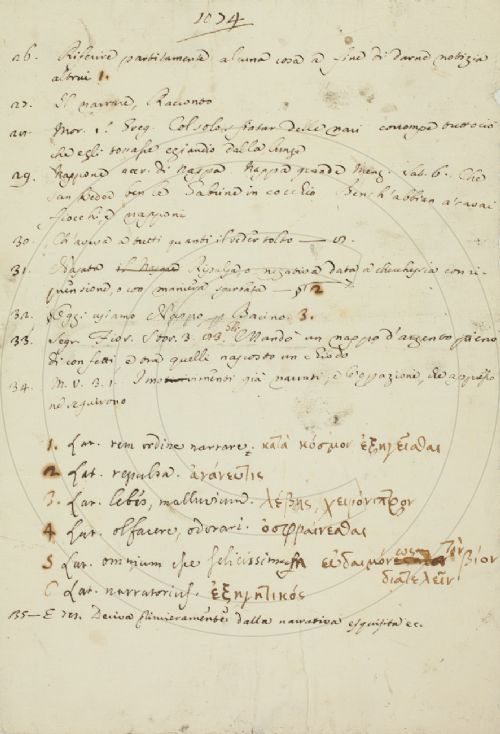 1074
26. Riferire partitamente alcuna cosa a fine di darne notizia
altrui 1.
27. Il narrare, Racconto
28. Mor. S. Greg. Col solo fiatar delle nari corrompe tutto ciò
che egli eziandio dalla lunge
29. Nappone accr. di Nappa Nappa grande Menz. sat. 6. Che
san Pedon ven ce Gabine in cocchio Bench'abbian
fiocchi, e napponi
30. Ch'avvisa a tutti quanti il veder tolto — S.
31. Nasata Repulsa o negativa data a chicchessia con ri-
prensione o con maniera sguaiata — 2
32. Oggi usiamo Nappo p Bacino. 3.
33. Segr. Fior. Stor. 3. Mandò un nappo d'argento pieno
di confetti e era quelli nascosto un chiodo
34. M. V. 3. 1. I movimenti già narrati, e l'oppazione, che appresso
ne seguirono
1. Lat. rem ordine narrare. κατὰ κόσμον ἐξηγεῖσθαι
2 Lat. repulsa. ἀνάνευσις
3. Lat. lebes, malluvium. λέβης, χειρόνιπτρον
4. Lat. olfacere, odorari. ὀσφραίνεσθαι
5 Lat. omnium felicissimum εὐδαιμόνως τὸν βίον
διατελεῖν
6 Lat. narratorius. ἐξηγητικός
35— E res. Deriva primieramente dalla narrativa esquisita ec.